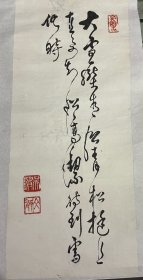 大雪壓青松青松挺且
直要知松高潔待到雪
化時